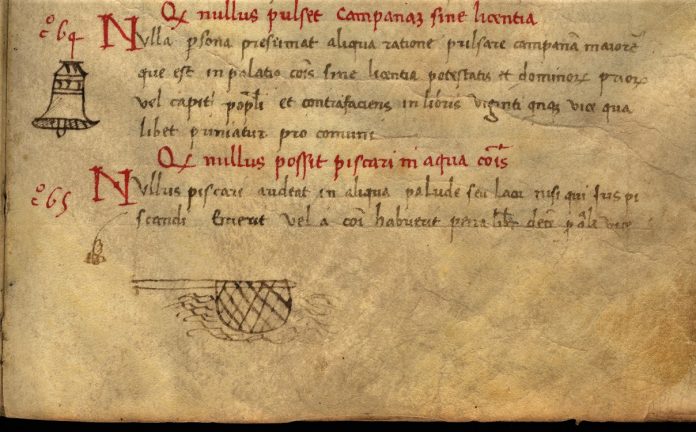 Q nullus pulset campanaȝ sine licentia
cº 64 Nulla psona presumat aliqua ratione pulsare campanã maiorẽ
que est in palatio cois sine licentia potestatis et dominorꝝ priorꝝ
vel capit ppli et contrafaciens in libris viginti qnqȝ vice qua
libet puniatur pro comuni
Q nullus possit piscari in aqua cois
cº 65 Nullus piscari audeat in aliqua palude seu lacu nisi qui ius pi
scandi emerit vel a coi habuerit pena libr dece p qlƚ vice